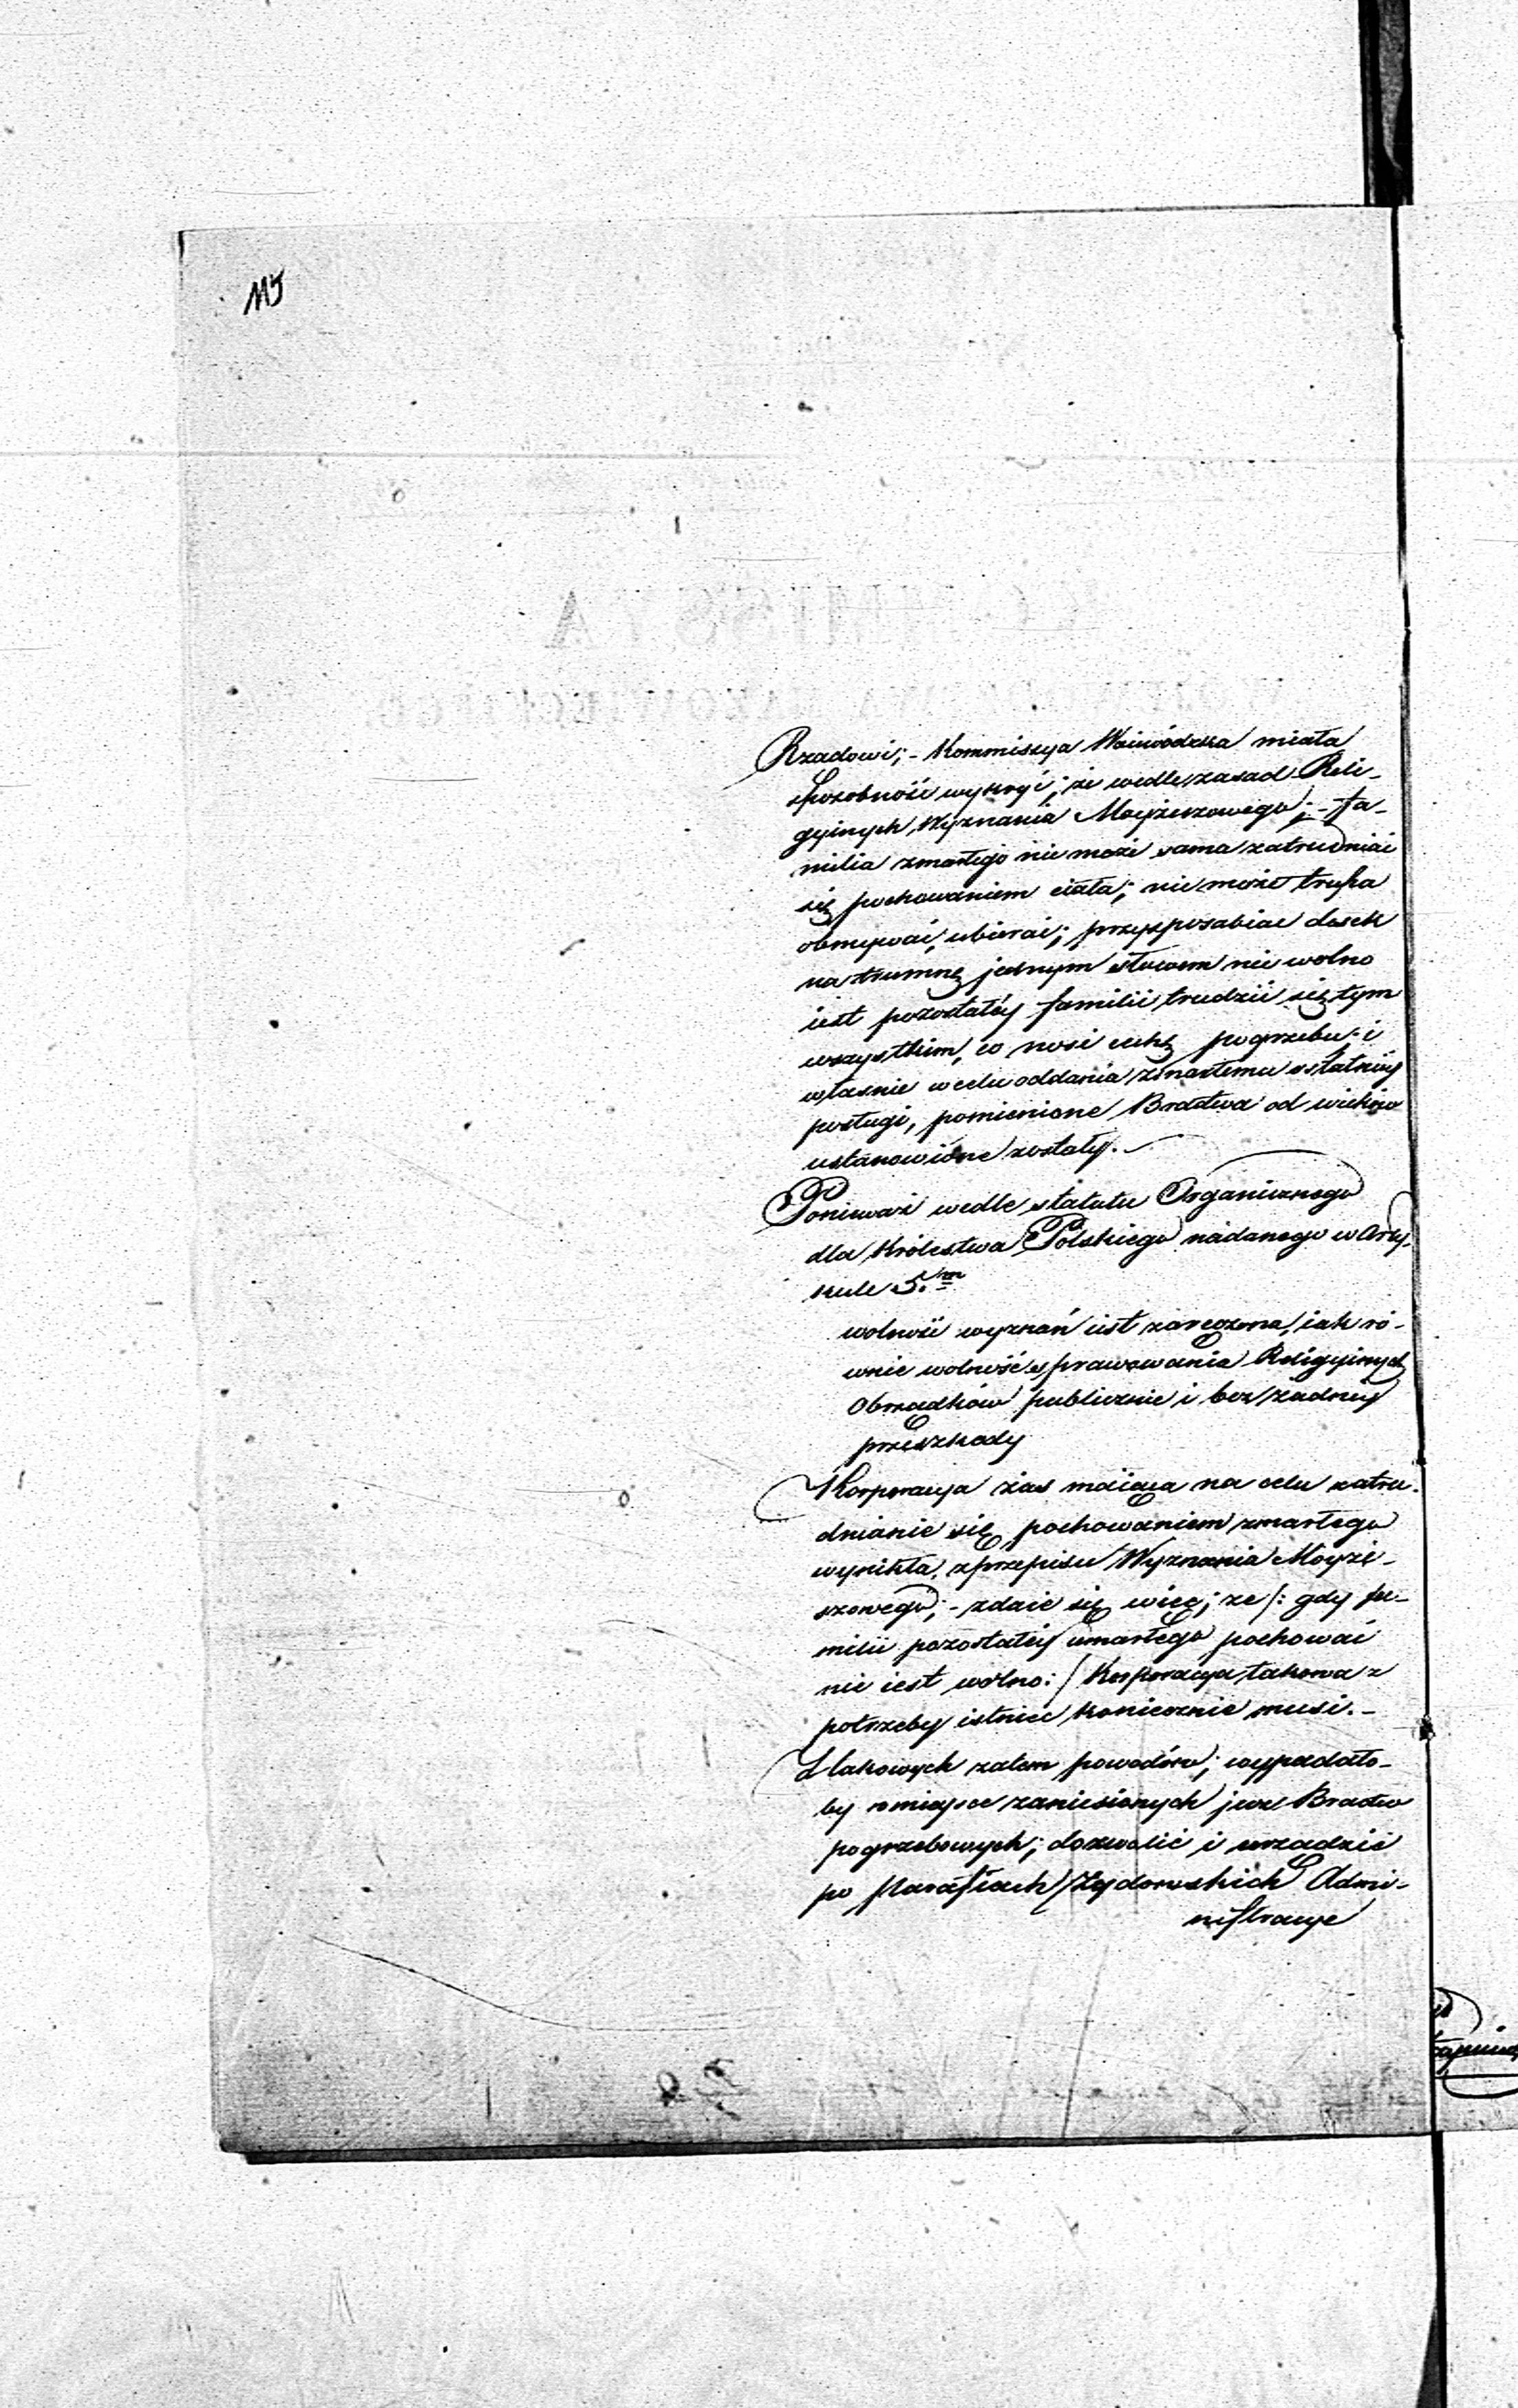 115
Rządowi; - Kommissya Woiewódzka miała
sposobność wykryć; że wedle zasad Reli-
gyinych Wyznania Moyżeszowego; - fa-
milia zmarłego nie może sama zatrudniać
się pochowaniem ciała; nie może trupa
obmywać, ubierać; przysposabiać desek
na trumnę jednym słowem nie wolno
iest pozostałéy familii trudzić się tym
wszystkim, co nosi cechę pogrzebu; i
własnie w celu oddania zmarłemu ostatniéy
posługi, pomienione Bractwa od wieków
ustanowione zostały. -
Ponieważ wedle statutu Organicznego
dla Królestwa Polskiego nadanego w Arty-
kule 5.m
wolność wyznań iest zaręczona, iak ró-
wnie wolność sprawowania Religyinych
Obrządków publicznie i bez żadnéy
przeszkody
Korporacya zaś maiąca na celu zatru-
dnianie się pochowaniem zmarłego
wynikła, z przepisu Wyznania Moyże-
szowego; - zdaie się więc; że /: gdy fa-
milii pozostałéy umarłego pochować
nie iest wolno: / Korporacya takowa z
potrzeby istnieć koniecznie musi. -
Z takowych zatem powodów; wypadało-
by w mieysce zaniesionych Bractw
pogrzebowych; dozwolić i urządzić
po Parafiach Żydowskich Admi-
nistracye